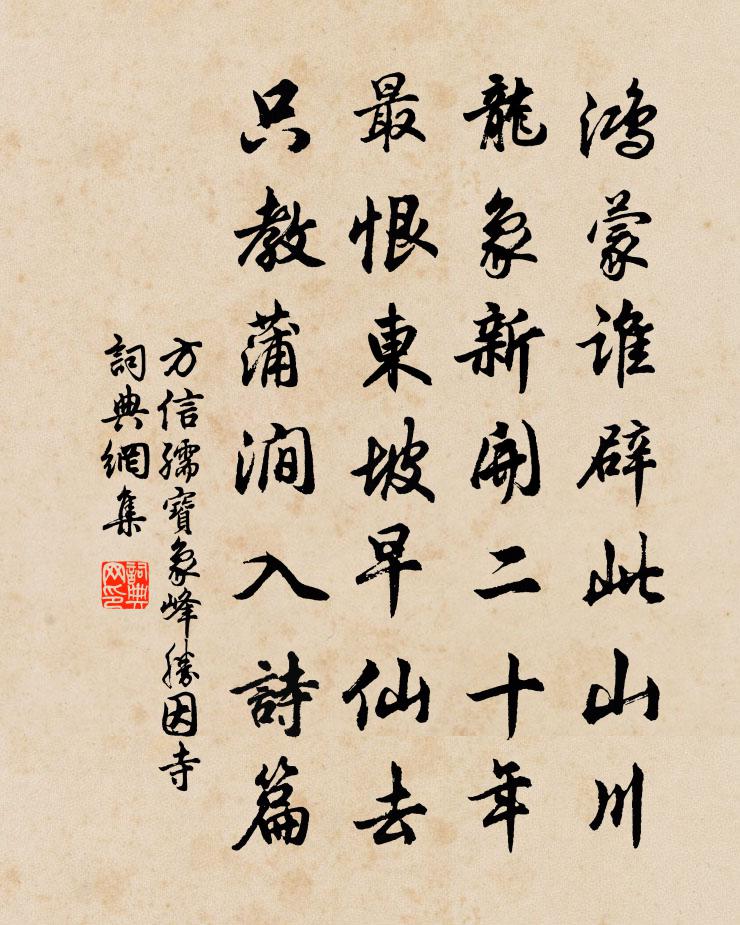 鴻蒙誰辟此山川
龍象新開二十年
最恨東坡早仙去
只教蒲澗入詩篇
方信孺寶象峰勝因寺
詞典網集
詞典网印